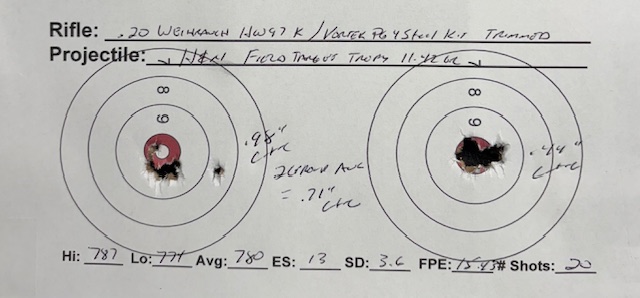 Rifle: .20 Weihrauch HW97K / Vortek PG4 Steel Kit Trimmed
Projectile: H&N Field Target Trophy 11.42 gr
8 8
9 9
.98"
CTC
.44"
CTC
2 Group Avg
= .71"
CTC
Hi: 787 Lo: 774 Avg: 780 ES: 13 SD: 3.6 FPE: 15.43# Shots: 20